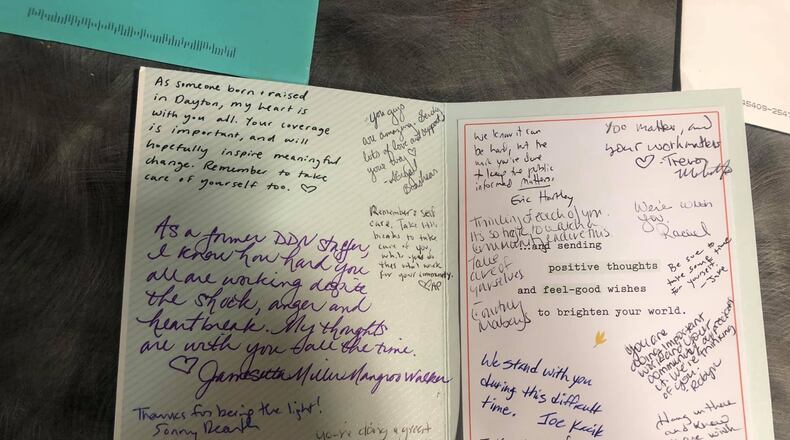 As someone born & raised
in Dayton, my heart is
with you all. Your coverage
is important, and will
hopefully inspire meaningful
change. Remember to take
care of yourself too. ♡
You guys
are amazing. Sending
lots of love and support
your way ♡
Remember self
care. Take
breaks to take
care of you,
while you do
this vital work
for your community.
♡ AP
As a former DDN staffer,
I know how hard you
all are working despite
the shock, anger and
heartbreak. My thoughts
are with you all the time.
♡ Miller Mangroo Walker
Thanks for being the light!
Sonny
you're doing a great
We know it can
be hard, but the
work you're doing
to keep the public
informed matters.
Eric Hartley
You matter, and
your work matters
♡ - Trevor
Thinking of each of you.
It's so hard to watch a
community endure this.
Take
care of
yourselves
Courtney
We're with
you.
Rachel
...and sending
positive thoughts
and feel-good wishes
to brighten your world.
Be sure to
take some time
for yourself.
You are
doing important
work and your
community appreciates
it. We're thinking
of you.
Robyn
We stand with you
during this difficult
time. Joe
Hang in there
and know
45409-254